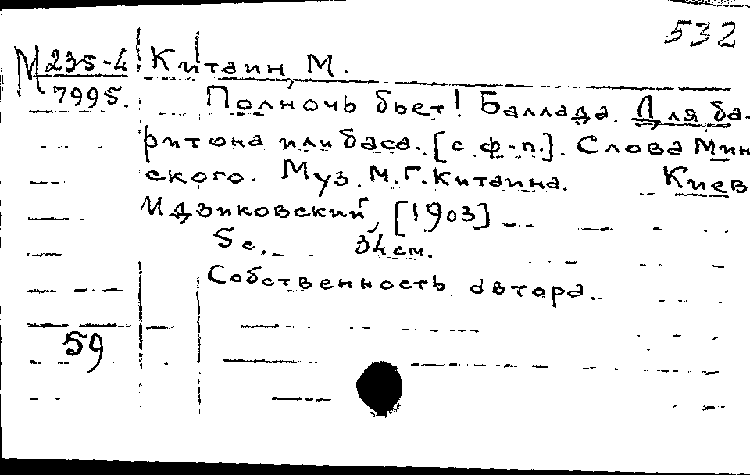 532
М 235-4 Китаин, М.
7995. Полночь бьет! Баллада. Для ба-
ритона или баса. [с ф-п.]. Слова Мин
ского. Муз. М.Г. Китаина. Киев
Идзиковский, [1903]
5 с. 34 см.
Собственность автора.
59